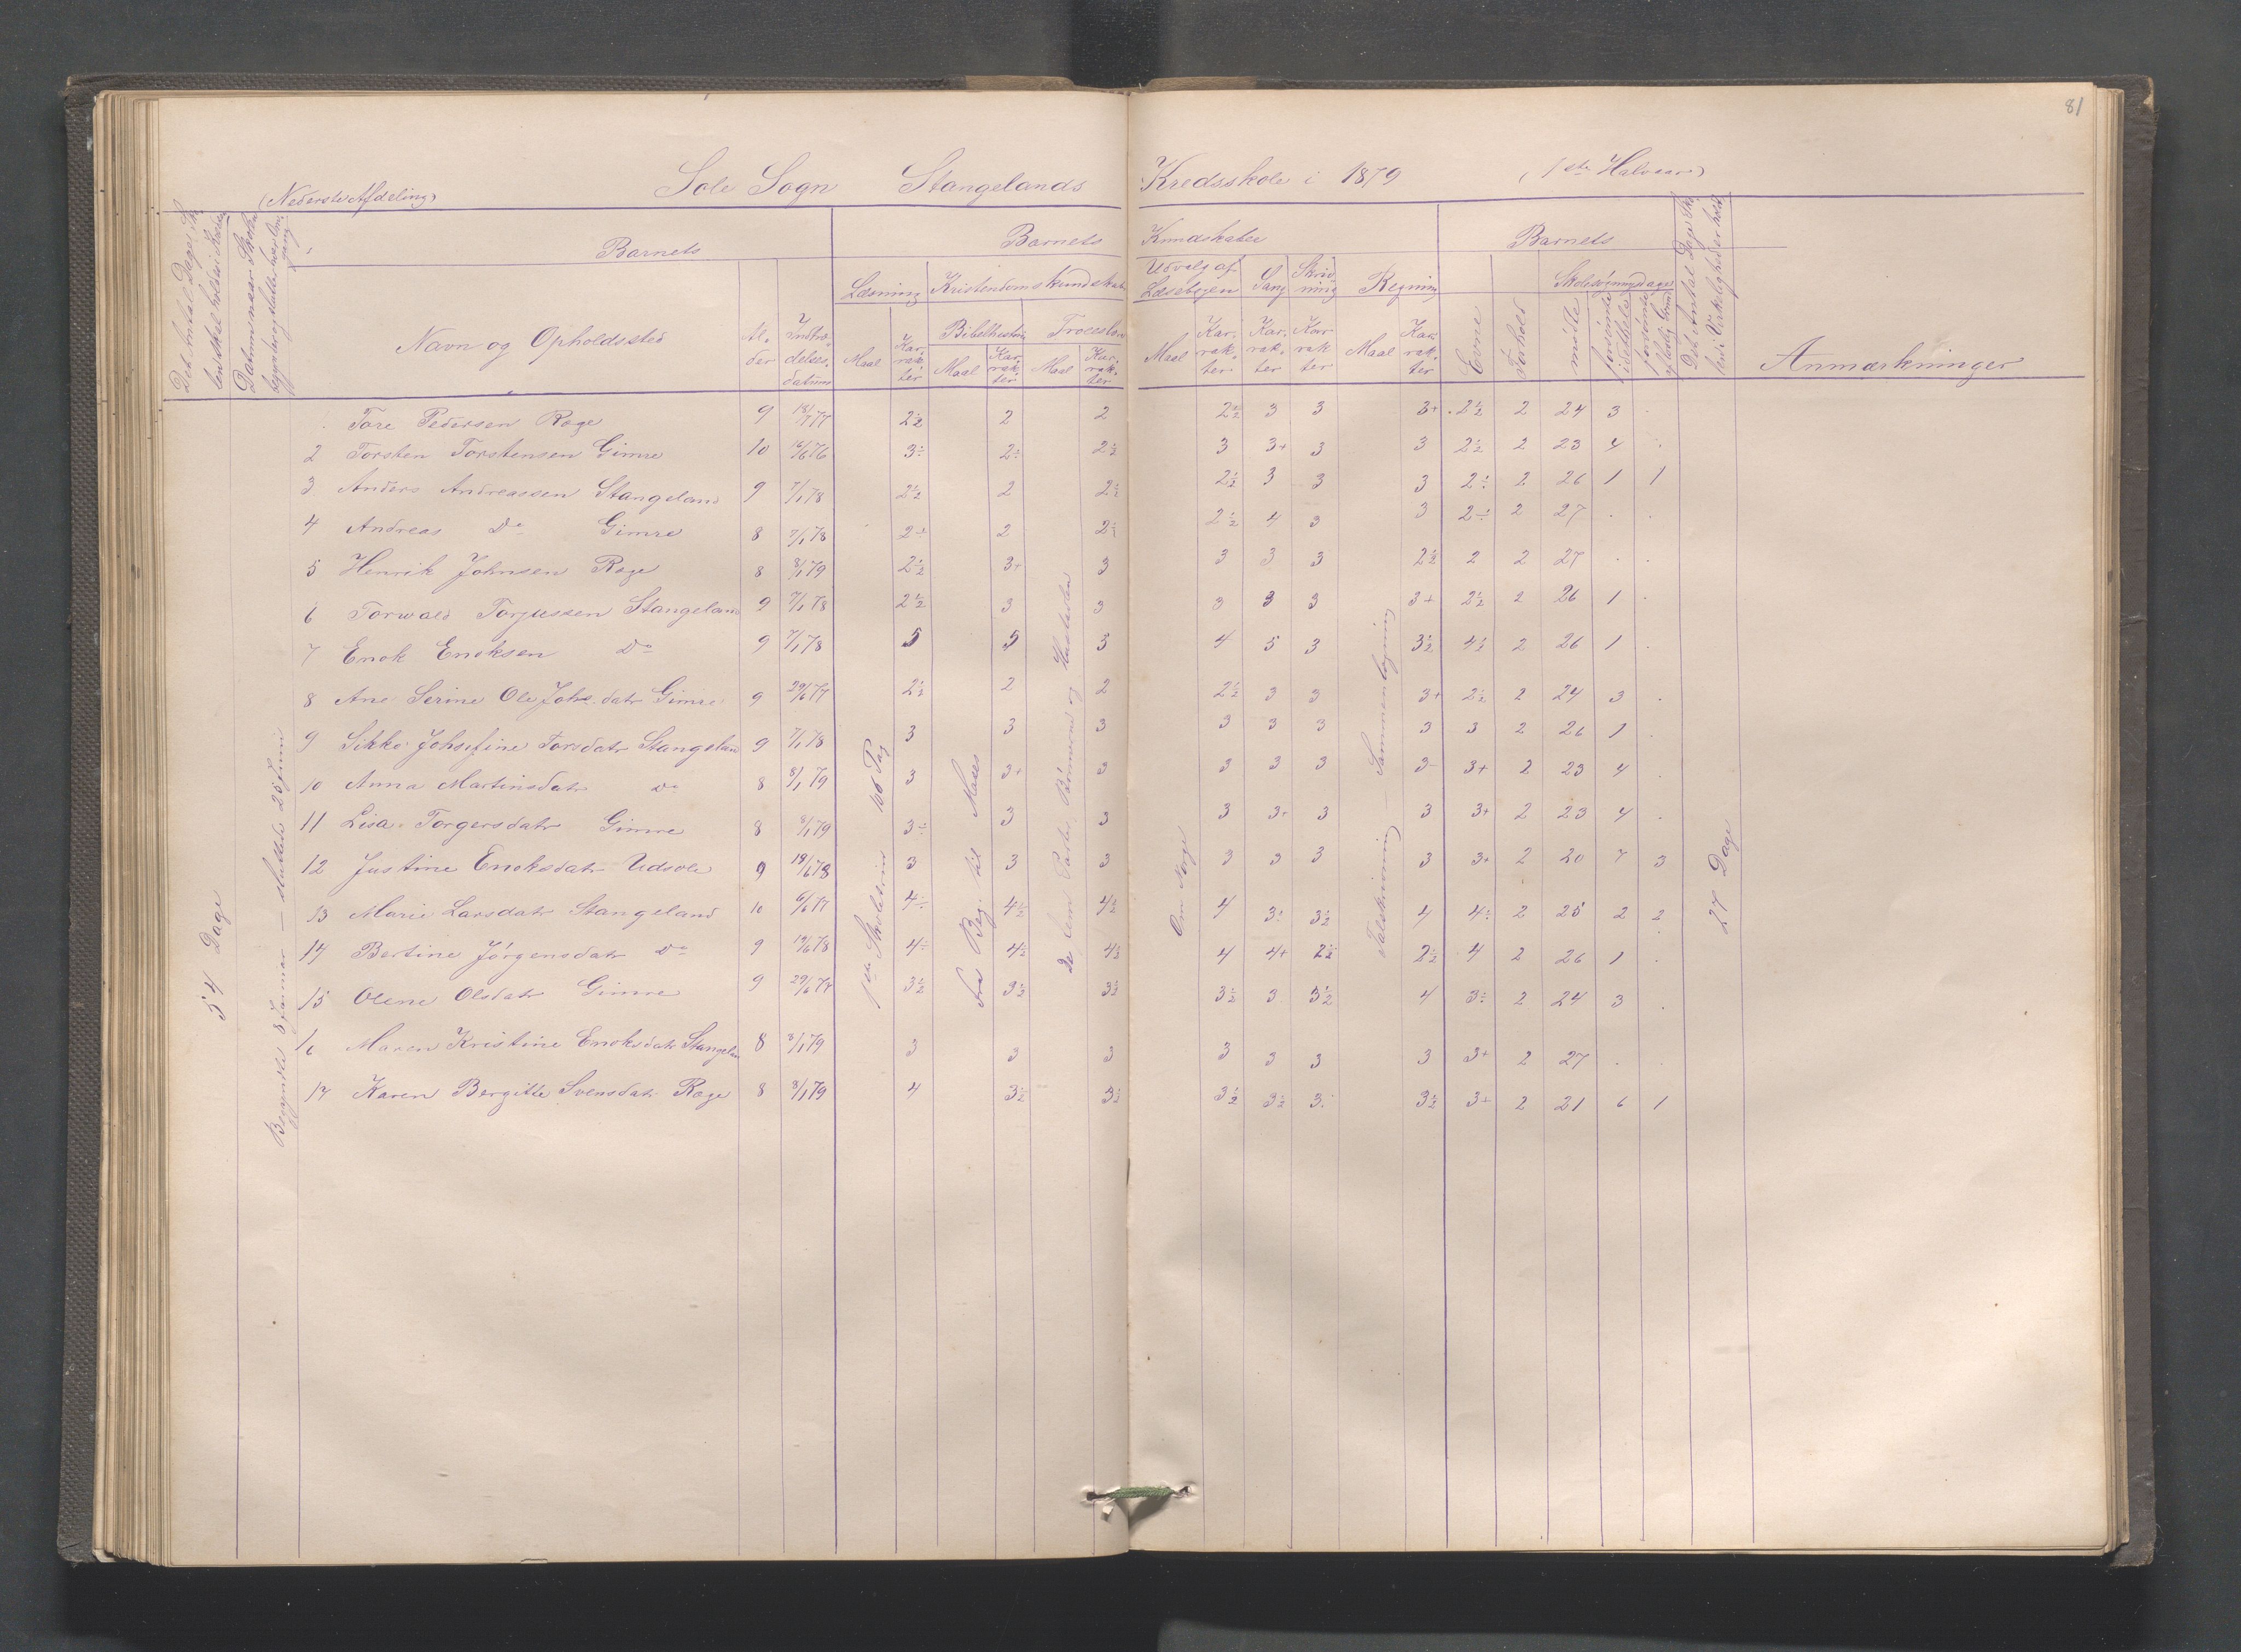 81
(Nederste Afdeling) Sole Sogn Stangelands Kredsskole i 1879 (1ste Halvaar)
Det Antal Dage Skolen skal holdes i Kredsen
Datum naar Skolen begynder og slutter hver Omgang
Barnets Barnets Kundskaber Barnets
Læsning Kristendomskundskab Udvalg af Læsebogen Sang Skrivning Regning Skolesøgningsdage
Navn og Opholdssted Alder Indtrædelsesdatum Maal Karakter Bibelhistorie Maal Karakter Troeslære Maal Karakter Maal Karakter Karakter Karakter Maal Karakter Evne Forhold mødte forsømte i det Hele forsømte af lovlig Grund Det Antal Dage Skolen i Virkeligheden er holdt Anmærkninger
54 Dage
Begyndte 8 Januar — sluttede 25 Juni
1ste Skoletrin
Fra Beg. til Moses
De fem Parter, Børnenes og Hustavlen
Om Norge
Talskrivning — Sammenlægning
27 Dage
1 Tore Pedersen Roge 9 18/7 77 2½ 2 2 2½ 3 3 3+ 2½ 2 24 3 .
2 Torsten Torstensen Gimre 10 16/6 76 3÷ 2÷ 2½ 3 3+ 3 3 2½ 2 23 4 .
3 Anders Andreassen Stangeland 9 7/1 78 2½ 2 2½ 2½ 3 3 3 2÷ 2 26 1 1
4 Andreas Do Gimre 8 7/1 78 2÷ 2 2÷ 2½ 4 3 3 2÷ 2 27 . .
5 Henrik Johnsen Roge 8 8/1 79 2½ 3+ 3 3 3 3 2½ 2 2 27 . .
6 Torwald Torjussen Stangeland 9 7/1 78 2½ 3 3 3 3 3 3+ 2½ 2 26 1 .
7 Enok Enoksen Do 9 7/1 78 5 5 5 4 5 3 3½ 4½ 2 26 1 .
8 Ane Serine Ole Johs. datr Gimre 9 29/6 77 2½ 2 2 2½ 3 3 3+ 2½ 2 24 3 .
9 Sikke Johsefine Torsdatr Stangelan 9 7/1 78 3 3 3 3 3 3 3 3 2 26 1 .
10 Anna Martinsdatr Do 8 8/1 79 3 3+ 3 3 3 3 3- 3+ 2 23 4 .
11 Lisa Torgersdatr Gimre 8 8/1 79 3÷ 3 3 3 3+ 3 3 3+ 2 23 4 .
12 Justine Enoksdatr Udsole 9 19/6 78 3 3 3 3 3 3 3 3+ 2 20 7 3
13 Marie Larsdatr Stangeland 10 6/6 77 4÷ 4½ 4½ 4 3÷ 3½ 4 4÷ 2 25 2 2
14 Bertine Jörgensdatr Do 9 19/6 78 4÷ 4½ 4½ 4 4+ 2½ 2½ 4 2 26 1 .
15 Olene Olsdatr Gimre 9 29/6 77 3½ 3½ 3½ 3½ 3 3½ 4 3÷ 2 24 3 .
16 Maren Kristine Enoksdatr Stangelan 8 8/1 79 3 3 3 3 3 3 3 3+ 2 27 . .
17 Karen Bergitte Svensdatr Roge 8 8/1 79 4 3½ 3½ 3½ 3½ 3. 3½ 3+ 2 21 6 1